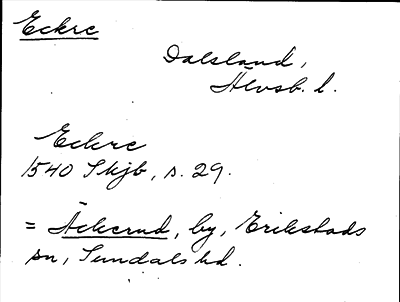 Eckre
Dalsland,
Älvsb. l.
Eckre
1540 Skjb, s. 29.
= Äckerud, by, Erikstads
sn, Sundals hd.